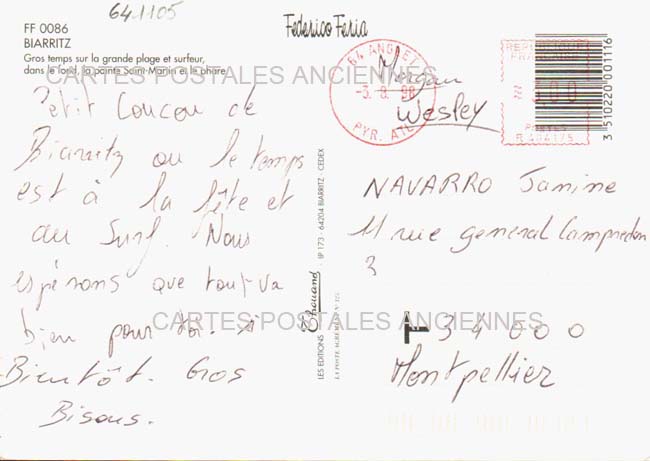 641105
FF 0086
BIARRITZ
Gros temps sur la grande plage et surfeur,
dans le fond, la pointe Saint-Martin et le phare.
Federico Feria
CARTES POSTALES ANCIENNES
Petit Coucou de
Biarritz ou le temps
est à la fête et
au Surf. Nous
espérons que tout va
bien pour toi. à
Bientôt. Gros
Bisous.
Morgan
Wesley
64 ANGLET
-3.8.98
PYR. ATL
REPUBLIQUE
FRANCAISE
POSTES
3 510220 001116
NAVARRO Janine
11 rue general Campredon
34000
Montpellier
CARTES POSTALES ANCIENNES
LES EDITIONS Chouand BP 173 - 64204 BIARRITZ - CEDEX